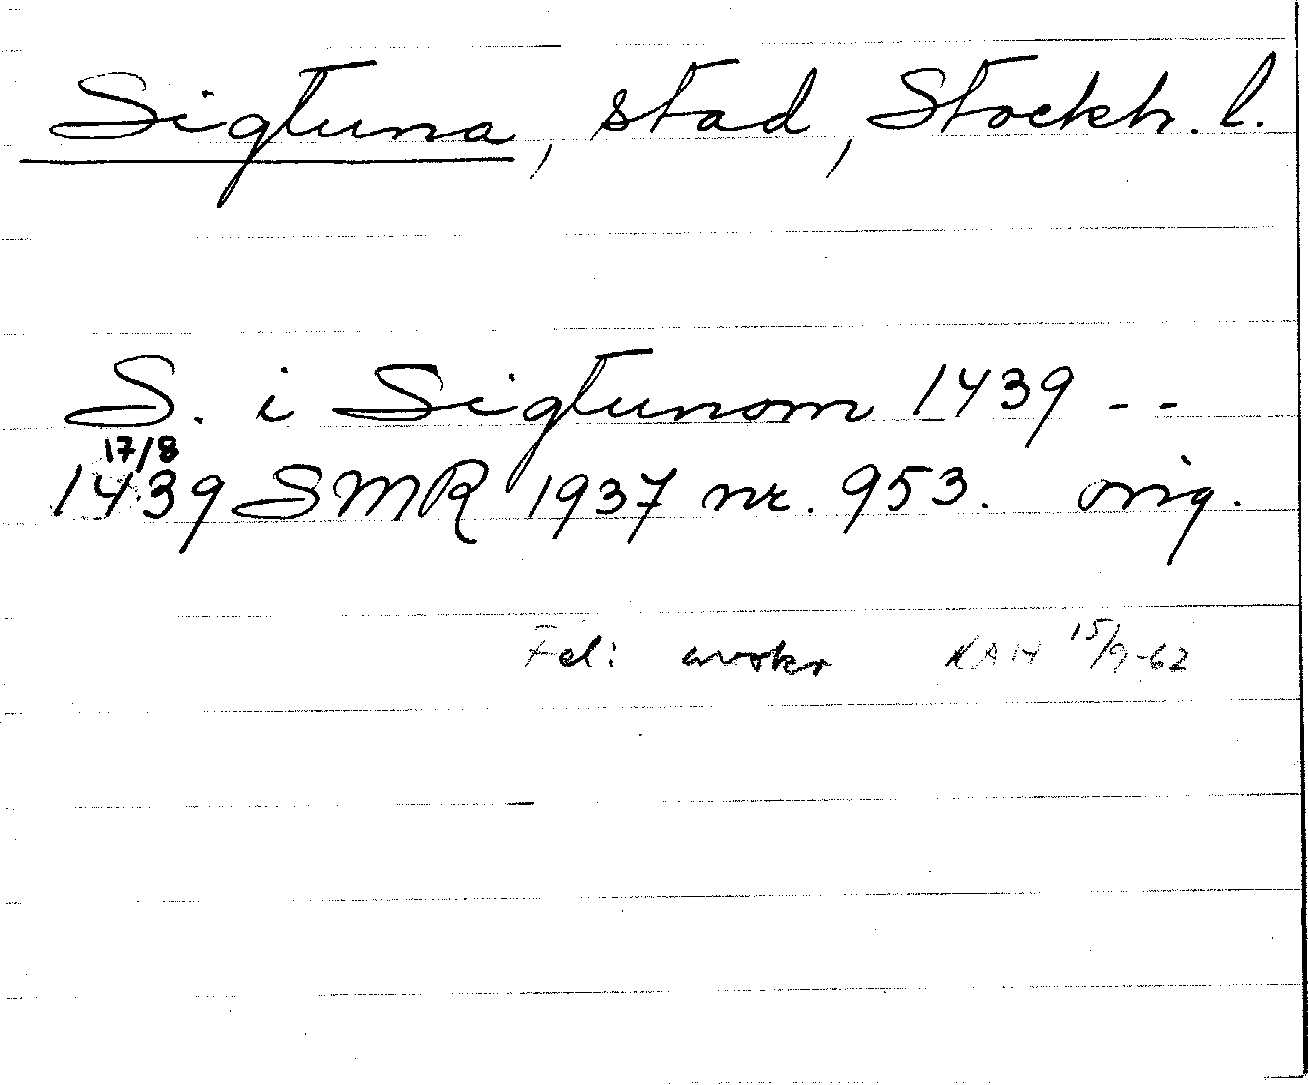 Sigtuna, stad, Stockh. l.
S. i Sigtunom 1439 - -
17/8
1439 SMR 1937 nr. 953. orig.
Fel: avskr KAH 15/9-62